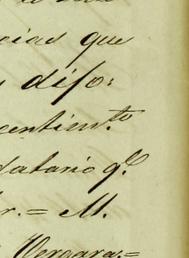 cias que
difo:
centien.to
datario q.e
r.= M.
Vergara.=